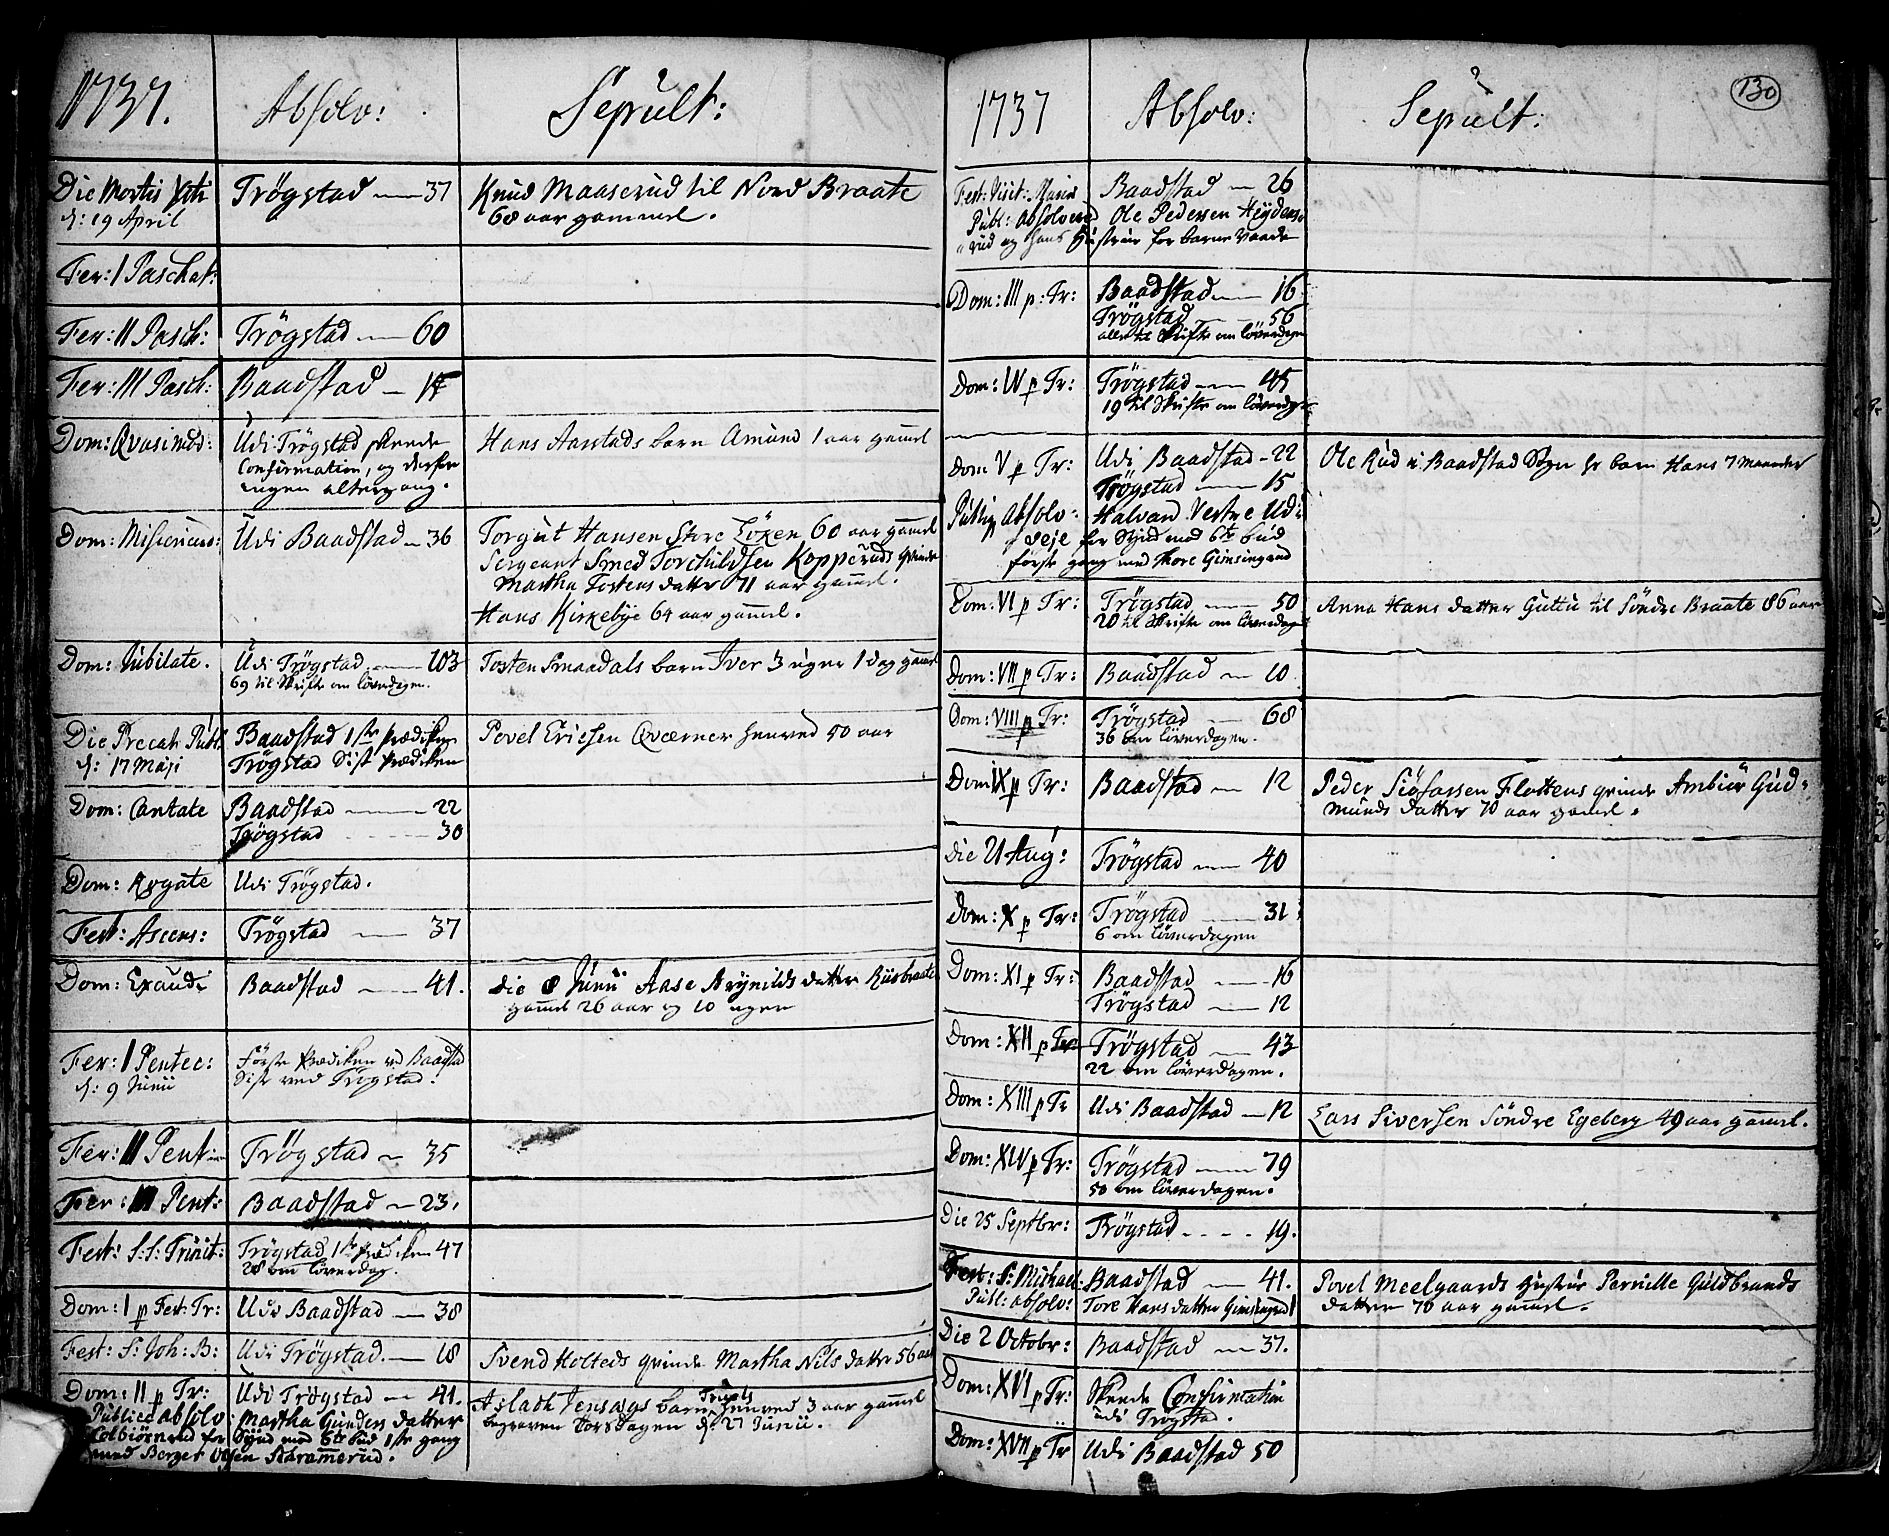 1737. Absolv: Sepult:
Die Mortis Xti Trögstad — 37 Knud Maaserud til Nord Braate
d: 19 April 68 aar gammel.
Fer: I Paschat:
Fer: II Pasch: Trögstad — 60
Fer: III Pasch: Baadstad — 14
Dom: Qvasimod: Udi Trögstad skeede Hans Aarstads barn Amund 1 aar gamel
Confirmation, og derfor
ingen altergang.
Dom: Misericord: Udi Baadstad — 36 Torgut Hansen Store Löken 60 aar gamel
Sergeant Smed Torchildsen Kopperuds qvinde
Martha Tostens datter 71 aar gamel.
Hans Kirkebye 64 aar gamel.
Dom: Jubilate. Udi Trögstad — 103 Tosten Smaadals barn Iver 3 uger 1 dag gamel
69 til Skrifte om löverdagen.
Die Precat: Publ. Baadstad 1ste Prædiken Povel Ericsen Qværner henved 50 aar
d: 17 Maji Trögstad Sist Prædiken
Dom: Cantate Baadstad — 22
Trögstad — 30
Dom: Rogate Udi Trögstad.
Fest: Ascens: Trögstad — 37
Dom: Exaudi Baadstad — 41. Die 8 Junii Aase Reynilds datter Riisbraate
gamel 26 aar og 10 uger
Fer: I Pentec: Förste Prædiken ved Baadstad
d: 9 Junii Sist ved Trögstad.
Fer: II Pent: Trögstad — 35
Fer: III Pent: Baadstad — 23.
Fest: S: S: Trinit: Trögstad 1ste Prædiken 47
28 om löverdag.
Dom: I p Fest: Tr: Udi Baadstad — 38
Fest: S: Joh: B: Udi Trögstad. — 18 Svend Holteds qvinde Martha Nils datter 56 aar
Dom: II p Tr: Udi Trögstad — 41. Asladh Jensægs barn Truels henved 3 aar gamel
Publice absolv: Martha Gunders datter begraven Torsdagen d: 27 Junii.
Kolbiörnrud for Synd mod 6te Bud 1ste gang
med Berger Olsen Skramerud.
1737 Absolv: Sepult: 130
Fest: Visit: Mariæ Baadstad — 26
Publ: absolvered Ole Pedersen Heydens-
rud og hans Hustrue for barne Vaade
Dom: III p: Tr: Baadstad — 16
Trögstad — 56
alle til Skrifte om löverdagen
Dom: IV p Tr: Trögstad — 45
19 til Skrifte om löverdagen
Dom V p Tr: Udi Baadstad — 22 Ole Rud i Baadstad Sogn hs barn Hans 7 Maaneder
Trögstad — 15
Publiq absolv: Halvard Vestre Ud-
veje for Synd mod 6te bud
förste gang med Thore Gimsingrud
Dom: VI p Tr: Trögstad — 50 Anna Hans datter Guttu til Söndre Braate 86 aar
20 til Skrifte om löverdagen
Dom: VII p Tr: Baadstad — 10
Dom: VIII p Tr: Trögstad — 68
36 om löverdagen.
Dom IX p Tr: Baadstad — 12 Peder Siöfarsen Flottens qvinde Ambiör Gud-
munds datter 70 aar gamel.
Die 21 Aug: Trögstad — 40
Dom: X p Tr: Trögstad — 31
6 om löverdagen
Dom: XI p Tr: Baadstad — 16
Trögstad — 12
Dom: XII p Tr Trögstad — 43
22 om löverdagen.
Dom: XIII p Tr Udi Baadstad — 12 Lars Siversen Söndre Egeberg 49 aar gamel.
Dom: XIV p Tr: Trögstad — 79
50 om löverdagen.
Die 25 Septbr: Trögstad — 19.
Fest: S: Michael: Baadstad — 41. Povel Meelgaards Hustrue Pernille Guldbrands
Publ: absolv: Tore Hans datter Gimsingrud datter 70 aar gamel.
Die 2 Octobr: Baadstad — 37.
Dom: XVI p Tr: Skeede Confirmation
udi Trögstad.
Dom: XVII p Tr Udi Baadstad 50